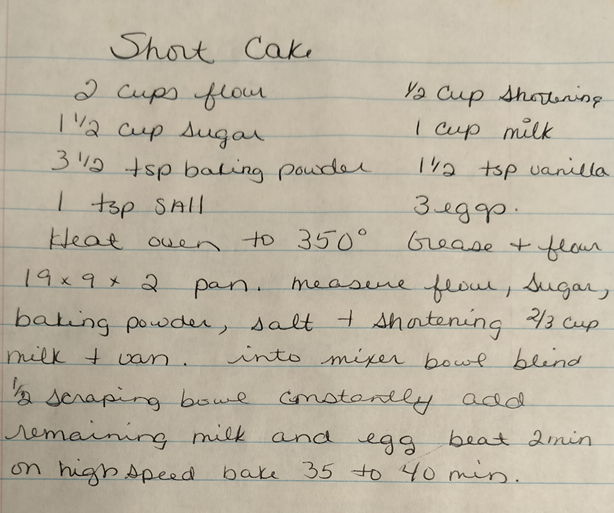 Short Cake
2 cups flour 1/2 cup shortening
1 1/2 cup sugar 1 cup milk
3 1/2 tsp baking powder 1 1/2 tsp vanilla
1 tsp SAll 3 eggs.
Heat oven to 350° Grease + flour
19 x 9 x 2 pan. measure flour, sugar,
baking powder, salt + shortening 2/3 cup
milk + van. into mixer bowl blind
1/2 scraping bowl constantly add
remaining milk and egg beat 2min
on high speed bake 35 to 40 min.